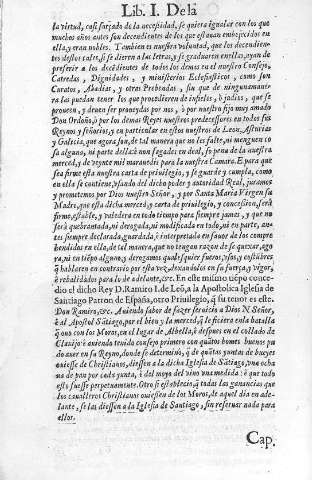 Lib. I. De la
la virtud, casi forçado de la necessidad, se quiera igualar con los que
muchos años antes son decendientes de los que estauan embejecidos en
ella, y eran nobles. Tambien es nuestra voluntad, que los decendien-
tes destos tales, si se dieren a las letras, y se graduaren en ellas, ayan de
preferir a los decendientes de todos los demas en el nuestro Consejo,
Catredas, Dignidades, y ministerios Eclesiasticos, como son
Curatos, Abadias, y otras Prebendas, sin que de ninguna manera
las puedan tener los que procedieren de infieles, o judios, que se
prouean, y deuen ser proueydas por nos, o por nuestro fijo muy amado
Don Ordoño, o por los demas Reyes nuestros predecessores en todos sus
Reynos y señorios, en particular en estos nuestros de Leon, Asturias
y Galicia, que agora son, de tal manera que no les falte, ni mengue co
sa alguna, ni parte della: è non fagades en deal, so pena de la nuestra
merced, y de veynte mil marauedis para la nuestra Camara. E para que
sea firme esta nuestra carta de priuilegio, y se guarde y cumpla, como
en ella se contiene, vsando del dicho poder y autoridad Real, juramos
y prometemos por Dios nuestro Señor, y por Santa Maria Virgen su
Madre, que esta dicha merced, y carta de priuilegio, y concession, serà
firme, estable, y valedera en todo tiempo para siempre jamas, y que no
serà quebrantada, ni derogada, ni modificada en todo, ni en parte, an-
tes siempre declarada, guardada, è interpretada en fauor de los compre
hendidos en ella, de tal manera, que no tengan razon de se quexar, ago-
ra, ni en tiēpo alguno, y derogamos qualesquier fueros, vsos, y costūbres
q̃ hablaren en contrario por esta vez, dexandolos en su fuerça, y vigor,
è reualidados para lo de adelante, &c. En este mismo tiēpo conce
dio el dicho Rey D. Ramiro I. de Leō, a la Apostolica Iglesia de
Santiago Patron de España, otro Priuilegio, q̃ su tenor es este.
Don Ramiro, &c. Auiendo sabor de fazer seruicio a Dios N. Señor,
è al Apostol Sātiago, por el bien y la merced, q̃ le fiziera en la batalla
q̃ ouo con los Moros, en el lugar de Albella, y despues en el collado de
Clauijo è auiendo tenido consejo primero con quātos homes buenos pu
do auer en su Reyno, donde se determinò, q̃ de quātas yuntas de bueyes
ouiesse de Christianos, diessen a la dicha Iglesia de Sātiago, vna ocha
ua de pan por cada yunta, è del moyo del vino vna medida: è que todo
esto fuesse perpetuamente. Otro si establecio, q̃ todas las ganancias que
los caualleros Christianos ouiessen de los Moros, de aquel dia en ade-
lante, se las diessen a la Iglesia de Santiago, sin reseruar nada para
ellos.
Cap.